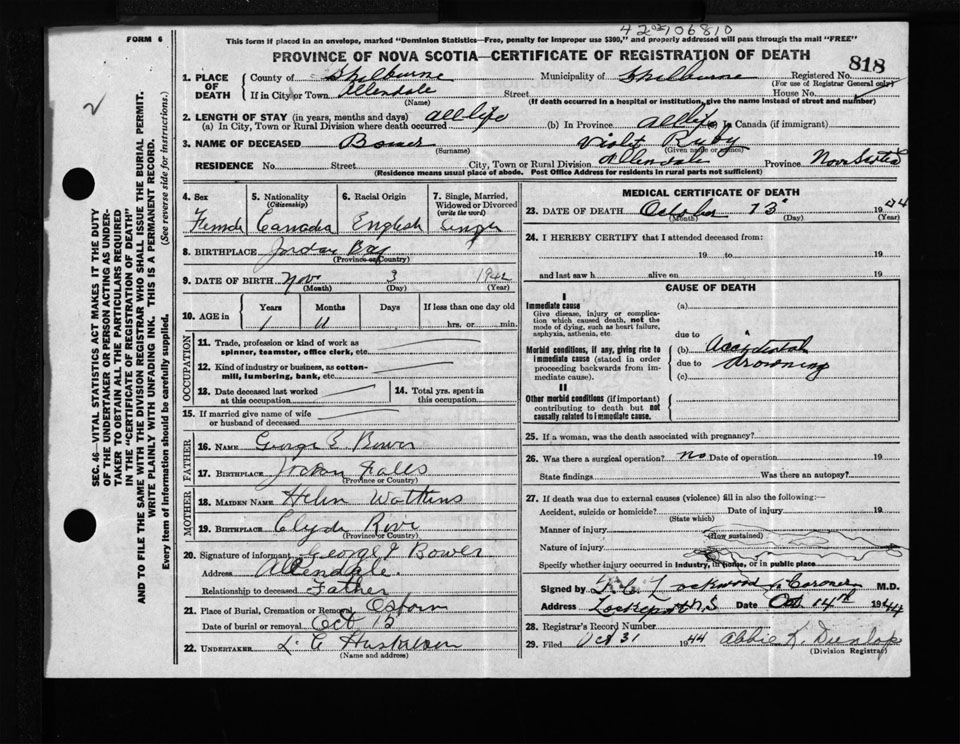 42 02 106810
FORM 6
This form if placed in an envelope, marked "Dominion Statistics—Free, penalty for improper use $300," and properly addressed will pass through the mail "FREE"
PROVINCE OF NOVA SCOTIA—CERTIFICATE OF REGISTRATION OF DEATH
818
2
1. PLACE OF DEATH
County of Shelburne Municipality of Shelburne Registered No.
(For use of Registrar General only)
If in City or Town Allendale Street House No.
(Name) (If death occurred in a hospital or institution, give the name instead of street and number)
2. LENGTH OF STAY (in years, months and days)
(a) In City, Town or Rural Division where death occurred all life (b) In Province all life In Canada (if immigrant)
3. NAME OF DECEASED Bower Violet Ruby
(Surname) (Given name or names)
RESIDENCE No. Street City, Town or Rural Division Allendale Province Nova Scotia
(Residence means usual place of abode. Post Office Address for residents in rural parts not sufficient)
4. Sex 5. Nationality (Citizenship) 6. Racial Origin 7. Single, Married, Widowed or Divorced (write the word)
Female Canadia English single
8. BIRTHPLACE Jordan Bay
(Province or Country)
9. DATE OF BIRTH Nov 3 1942
(Month) (Day) (Year)
10. AGE in Years Months Days If less than one day old
1 11 hrs. or min.
OCCUPATION
11. Trade, profession or kind of work as spinner, teamster, office clerk, etc.
12. Kind of industry or business, as cotton-mill, lumbering, bank, etc.
13. Date deceased last worked at this occupation 14. Total yrs. spent in this occupation
15. If married give name of wife or husband of deceased
FATHER
16. NAME George E. Bower
17. BIRTHPLACE Jordan Falls
(Province or Country)
MOTHER
18. MAIDEN NAME Helen Watkins
19. BIRTHPLACE Clyde River
(Province or Country)
20. Signature of informant George E Bower
Address Allendale.
Relationship to deceased Father
21. Place of Burial, Cremation or Removal Osborn
Date of burial or removal Oct 15
22. UNDERTAKER L. C
(Name and address)
MEDICAL CERTIFICATE OF DEATH
23. DATE OF DEATH October 13 1944
(Month) (Day) (Year)
24. I HEREBY CERTIFY that I attended deceased from:
19 to 19
and last saw h alive on 19
CAUSE OF DEATH
I
Immediate cause (a)
Give disease, injury or complication which caused death, not the mode of dying, such as heart failure, asphyxia, asthenia, etc.
due to
Morbid conditions, if any, giving rise to immediate cause (stated in order proceeding backwards from immediate cause).
(b) Accidental
due to drowning
(c)
II
Other morbid conditions (if important) contributing to death but not causally related to immediate cause.
25. If a woman, was the death associated with pregnancy?
26. Was there a surgical operation? no Date of operation 19
State findings Was there an autopsy?
27. If death was due to external causes (violence) fill in also the following:—
Accident, suicide or homicide? Date of injury 19
(State which)
Manner of injury
(How sustained)
Nature of injury
Specify whether injury occurred in industry, in home, or in public place
Signed by Lockwood Coroner M.D.
Address Lockeport N.S Date Oct 14th 1944
28. Registrar's Record Number
29. Filed Oct 31 1944 Abbie K. Dunlop
(Division Registrar)
SEC. 46—VITAL STATISTICS ACT MAKES IT THE DUTY
OF THE UNDERTAKER OR PERSON ACTING AS UNDER-
TAKER TO OBTAIN ALL THE PARTICULARS REQUIRED
IN THE "CERTIFICATE OF REGISTRATION OF DEATH"
AND TO FILE THE SAME WITH THE DIVISION REGISTRAR WHO SHALL ISSUE THE BURIAL PERMIT.
WRITE PLAINLY WITH UNFADING INK. THIS IS A PERMANENT RECORD.
Every item of information should be carefully supplied. (See reverse side for instructions.)